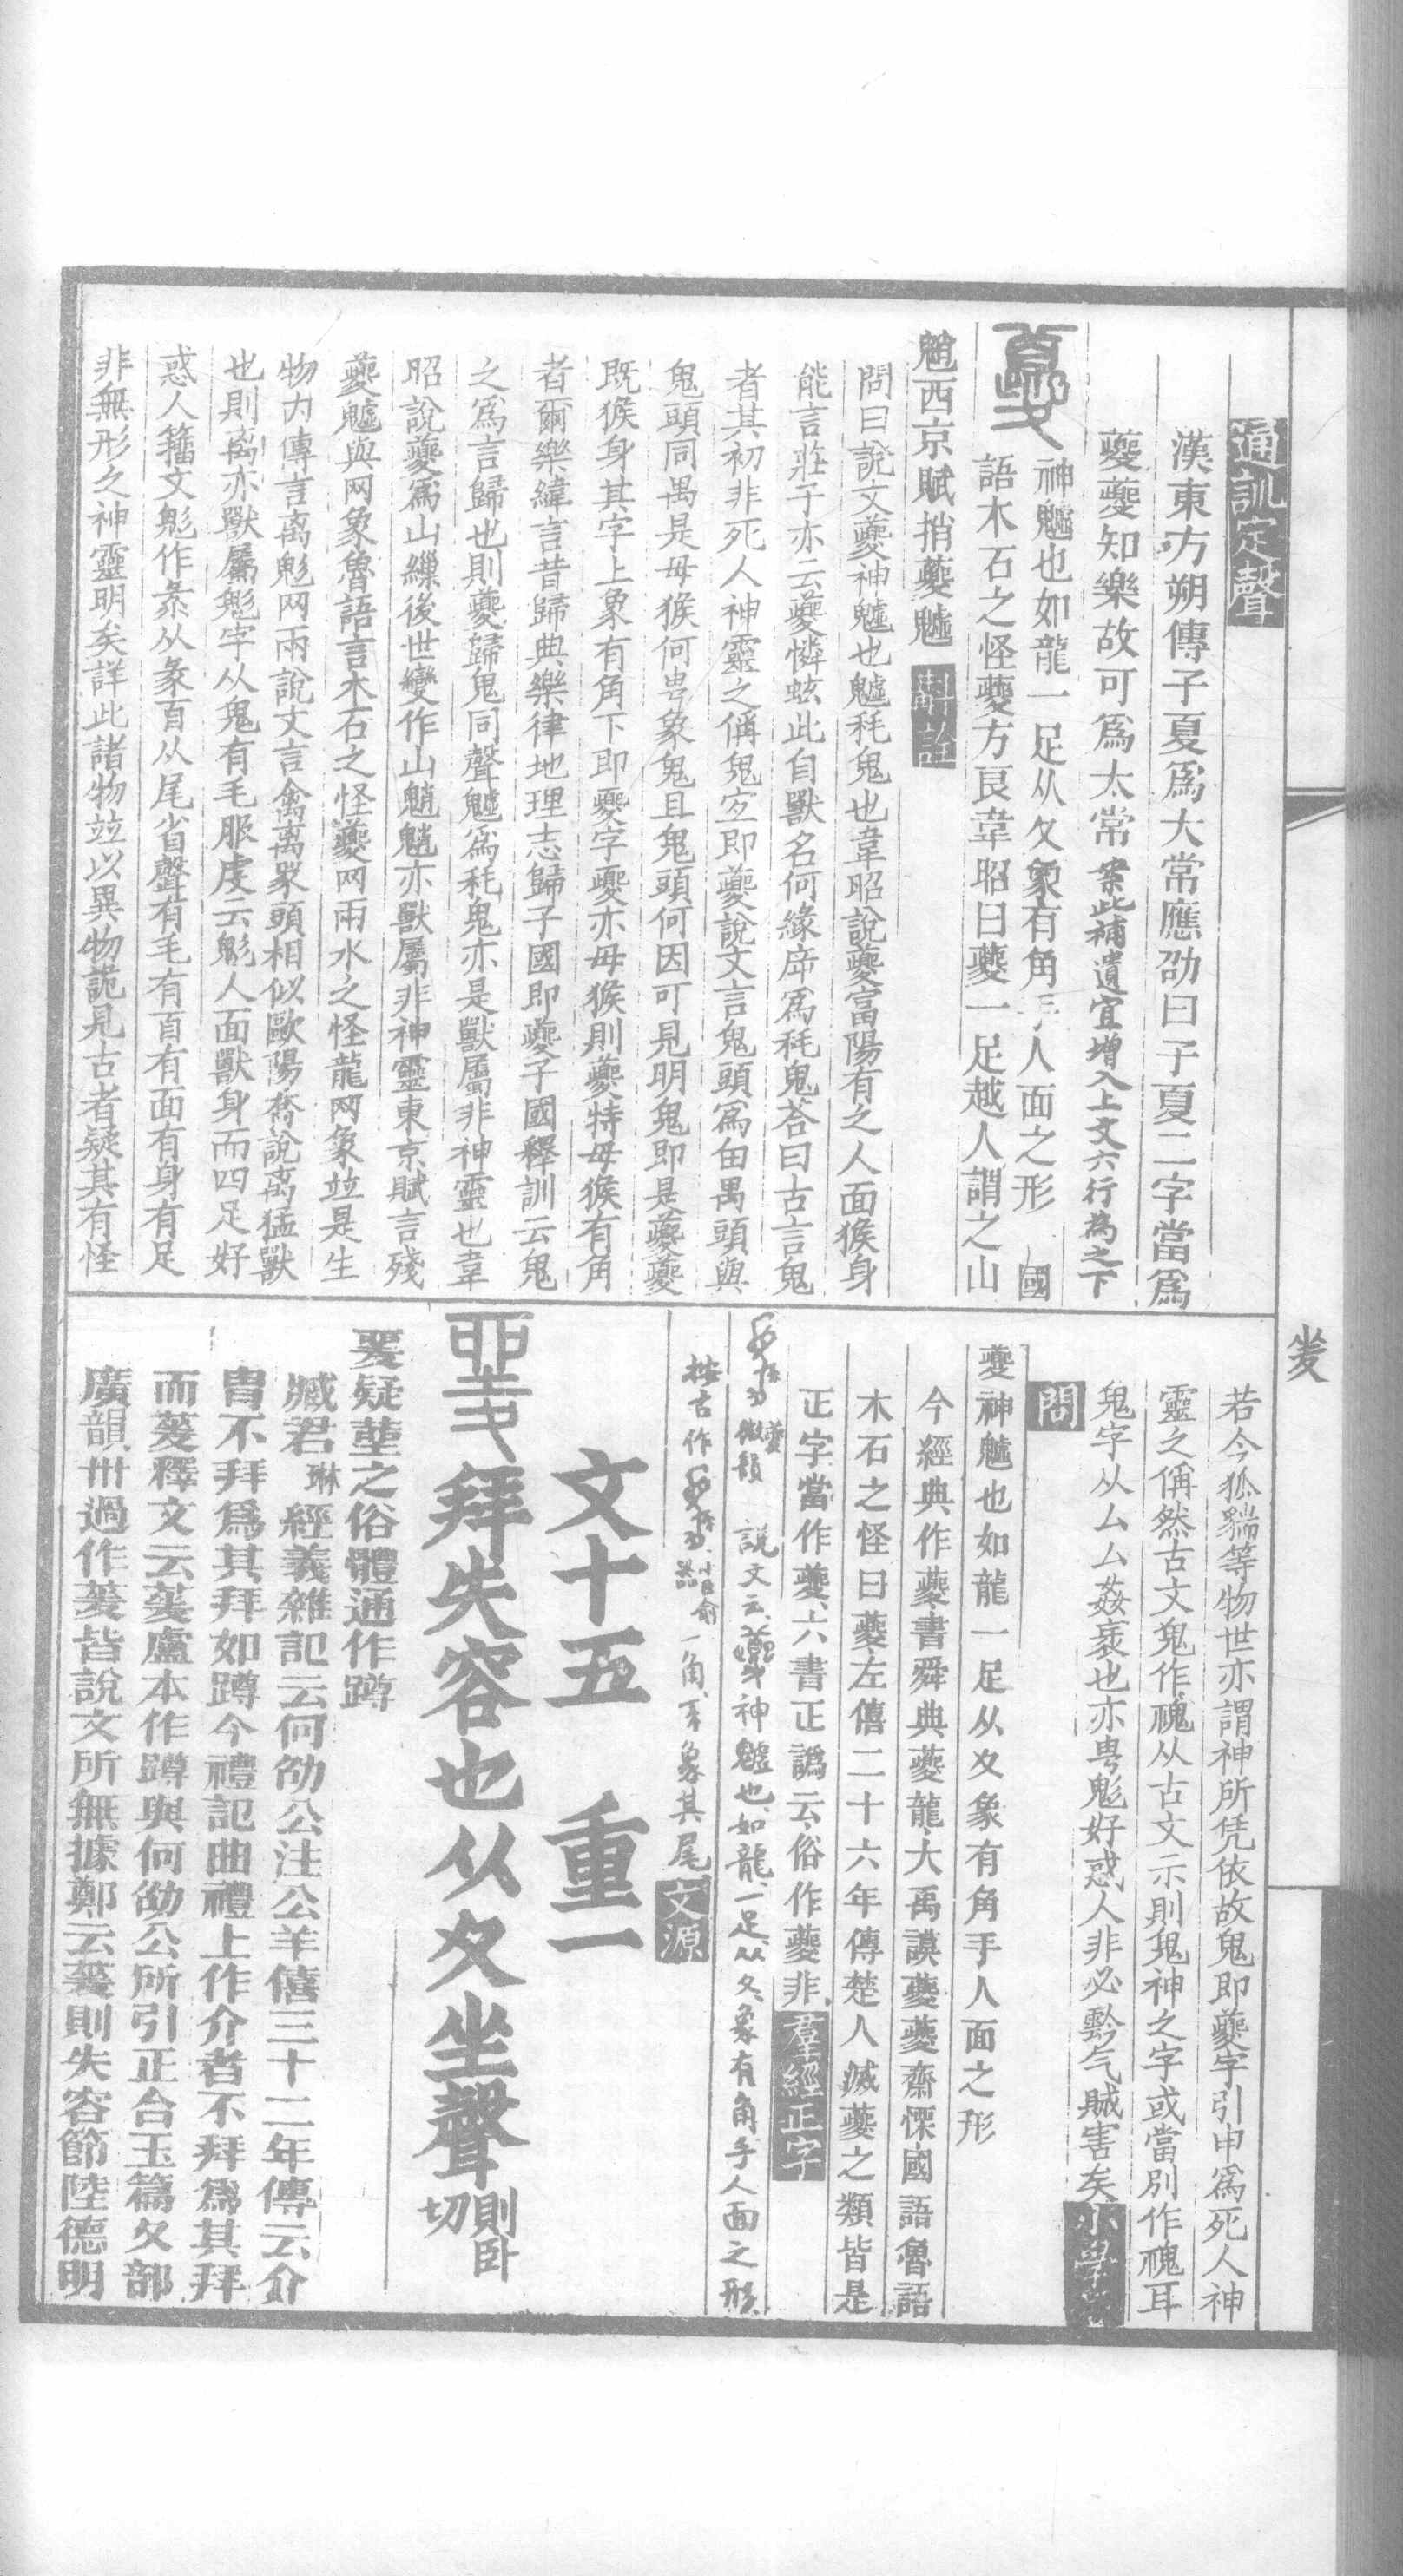 通訓定聲
漢東方朔傳子夏爲大常應劭曰子夏二字當爲
夔夔知樂故可爲太常案此補遺宜增入上文六行為之下
神魖也如龍一足从夊象有角手人面之形 國
語木石之怪夔方良韋昭曰夔一足越人謂之山
魈西京賦捎夔魖
問曰說文夔神魖也魖秏鬼也韋昭說夔富陽有之人面猴身
能言莊子亦云夔憐蚿此自獸名何緣㡿爲秏鬼荅曰古言鬼
者其初非死人神靈之偁鬼宐即夔說文言鬼頭爲甶禺頭與
鬼頭同禺是母猴何㠯象鬼且鬼頭何因可見明鬼即是夔夔
既猴身其字上象有角下即夒字夒亦母猴則夔特母猴有角
者爾樂緯言昔歸典樂律地理志歸子國即夔子國釋訓云鬼
之爲言歸也則夔歸鬼同聲魖爲秏鬼亦是獸屬非神靈也韋
昭說夔爲山繅後世變作山魈魈亦獸屬非神靈東京賦言殘
夔魖與网象魯語言木石之怪夔网兩水之怪龍网象竝是生
物左傳言离鬽网兩說文言禽离㒸頭相似歐陽喬說离猛獸
也則离亦獸屬鬽字从鬼有毛服虔云鬽人面獸身而四足好
惑人籒文鬽作从彖首从尾省聲有毛有首有面有身有足
非無形之神靈明矣詳此諸物竝以異物詭見古者疑其有怪
若今狐貒等物世亦謂神所凭依故鬼即夔字引申爲死人神
靈之偁然古文鬼作䰠从古文示則鬼神之字或當別作䰠耳
鬼字从厶厶姦衺也亦㠯鬽好惑人非必黔气賊害矣小學答
問
夔神魖也如龍一足从夊象有角手人面之形
今經典作夔書舜典夔龍大禹謨夔夔齋慄國語魯語
木石之怪曰夔左僖二十六年傳楚人滅夔之類皆是
正字當作夔六書正譌云俗作夔非羣經正字
夔微韻 說文云夔神魖也如龍一足从夊象有角手人面之形
按古作 一角 象其尾文源
文十五 重一
拜失容也从夊坐聲則卧切
㚆疑䔾之俗體通作蹲
臧君琳經義雜記云何劭公注公羊僖三十二年傳云介
胄不拜爲其拜如蹲今禮記曲禮上作介者不拜爲其拜
而蓌釋文云蓌盧本作蹲與何劭公所引正合玉篇夊部
廣韻卅過作蓌皆說文所無據鄭云蓌則失容節陸德明